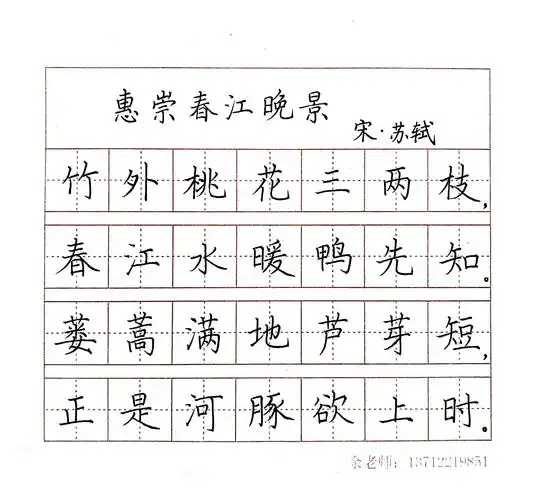 惠崇春江晚景
宋·苏轼
竹外桃花三两枝,
春江水暖鸭先知。
蒌蒿满地芦芽短,
正是河豚欲上时。
余老师：13712219851